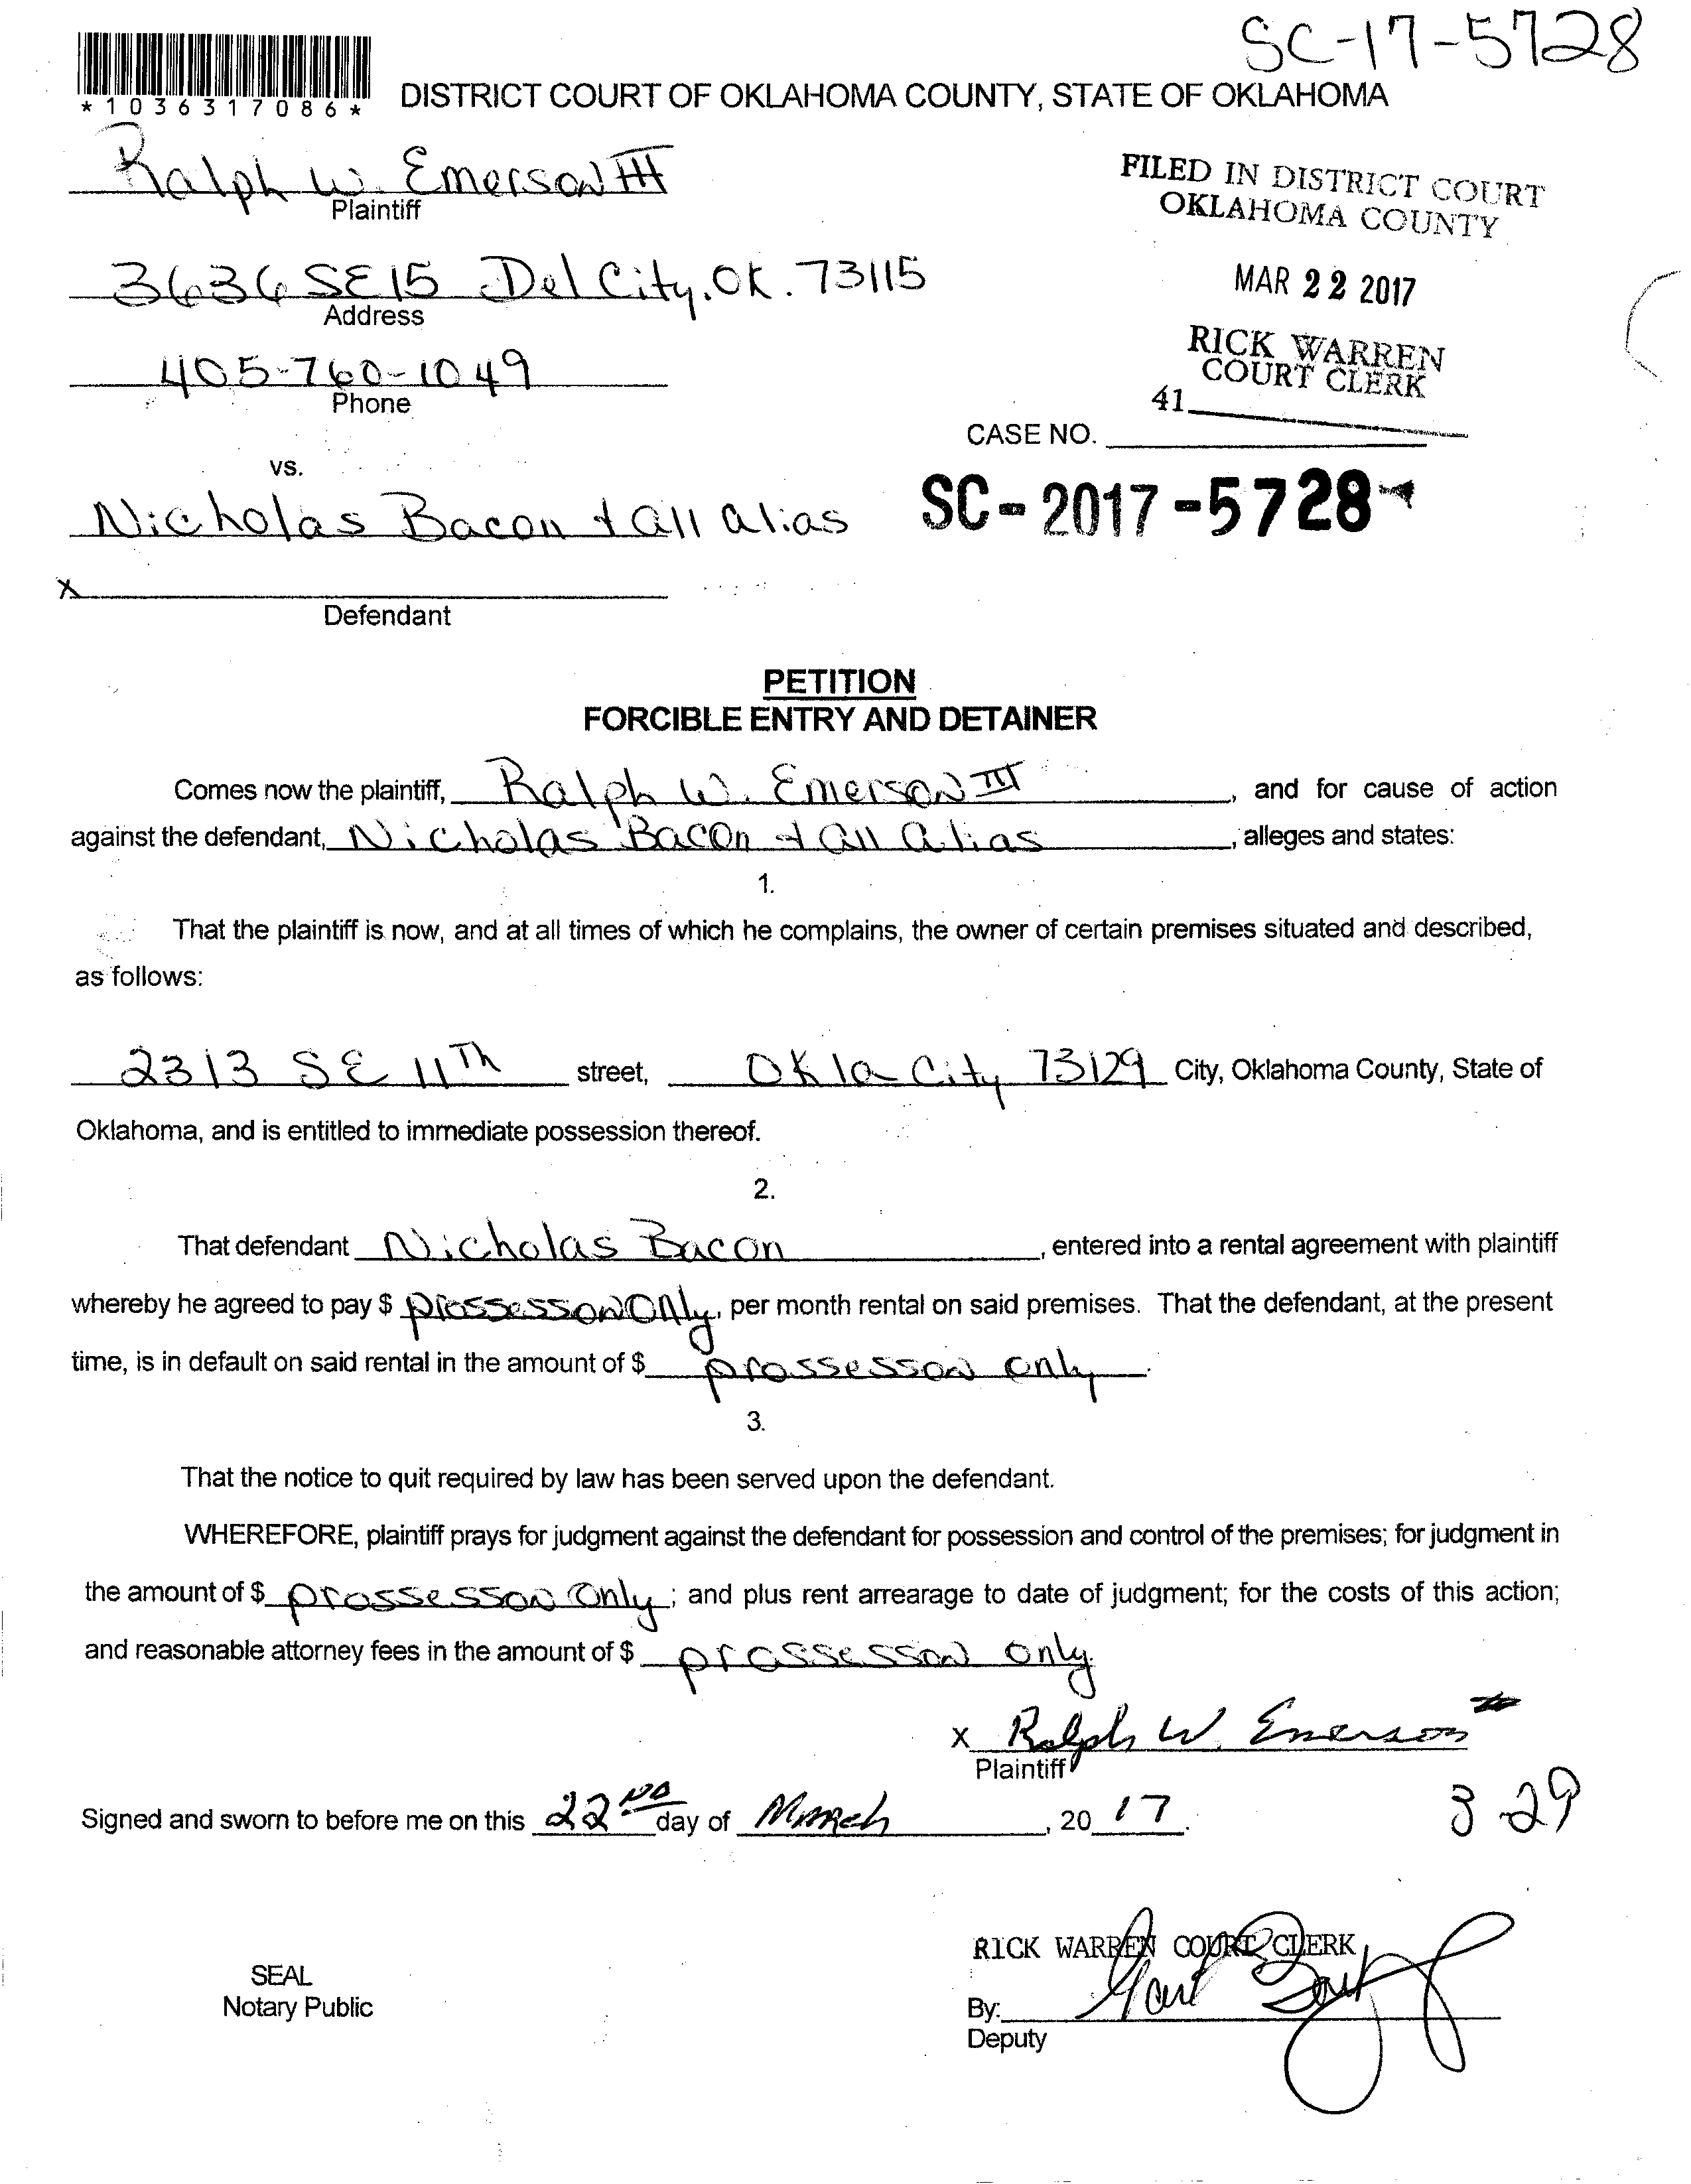 SC-17-5728
*1036317086*
DISTRICT COURT OF OKLAHOMA COUNTY, STATE OF OKLAHOMA
Ralph W. Emerson III
Plaintiff
FILED IN DISTRICT COURT
OKLAHOMA COUNTY
3636 SE 15 Del City, OK. 73115
Address
MAR 22 2017
405-760-1049
Phone
RICK WARREN
COURT CLERK
41
CASE NO.
vs.
Nicholas Bacon + all alias
SC-2017-5728
X
Defendant
PETITION
FORCIBLE ENTRY AND DETAINER
Comes now the plaintiff, Ralph W. Emerson III, and for cause of action
against the defendant, Nicholas Bacon + all alias, alleges and states:
1.
That the plaintiff is now, and at all times of which he complains, the owner of certain premises situated and described,
as follows:
2313 SE 11Th street, Okla City 73129 City, Oklahoma County, State of
Oklahoma, and is entitled to immediate possession thereof.
2.
That defendant Nicholas Bacon, entered into a rental agreement with plaintiff
whereby he agreed to pay $ prossesson Only, per month rental on said premises. That the defendant, at the present
time, is in default on said rental in the amount of $ prossesson only.
3.
That the notice to quit required by law has been served upon the defendant.
WHEREFORE, plaintiff prays for judgment against the defendant for possession and control of the premises; for judgment in
the amount of $ prossesson Only; and plus rent arrearage to date of judgment; for the costs of this action;
and reasonable attorney fees in the amount of $ prossesson only.
X Ralph W. Emerson III
Plaintiff
Signed and sworn to before me on this 22ND day of March, 2017.
3-29
RICK WARREN COURT CLERK
SEAL
Notary Public
By:
Deputy